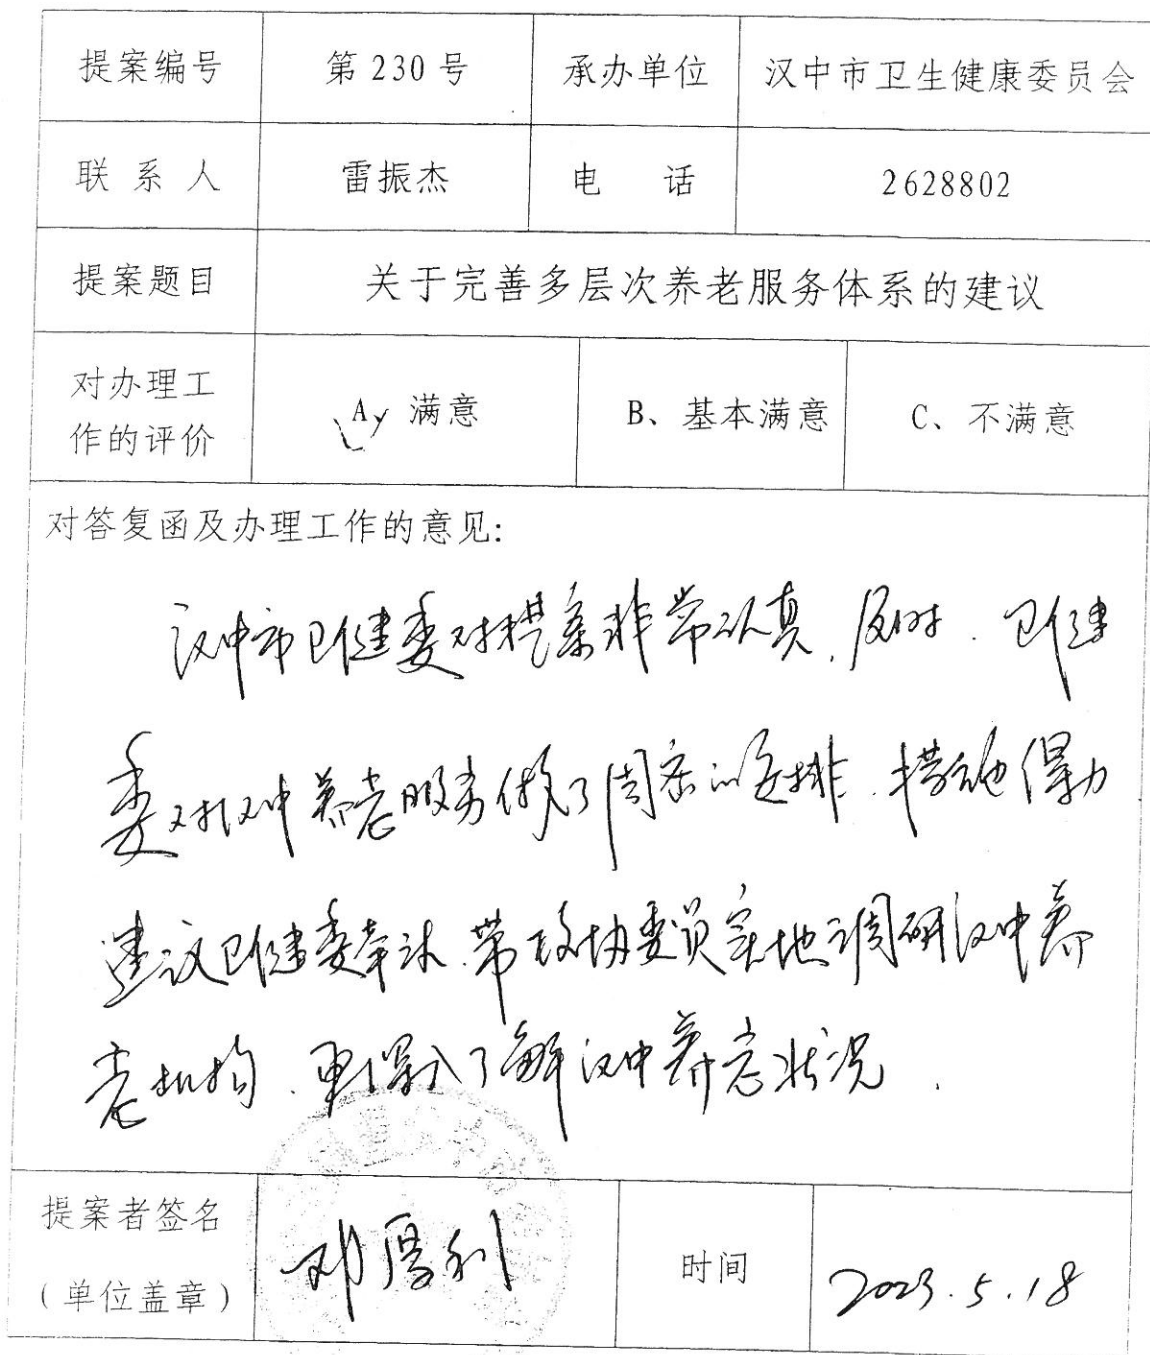 提案编号 第 230 号 承办单位 汉中市卫生健康委员会
联 系 人 雷振杰 电 话 2628802
提案题目 关于完善多层次养老服务体系的建议
对办理工
作的评价
A、满意 B、基本满意 C、不满意
对答复函及办理工作的意见:
汉中市卫健委对提案非常认真,及时. 卫健
委对汉中养老服务做了周密的安排. 措施得力
建议卫健委牵头.带政协委员实地调研汉中养
老机构.更深入了解汉中养老状况.
提案者签名
(单位盖章)
邓厚利 时间 2023.5.18